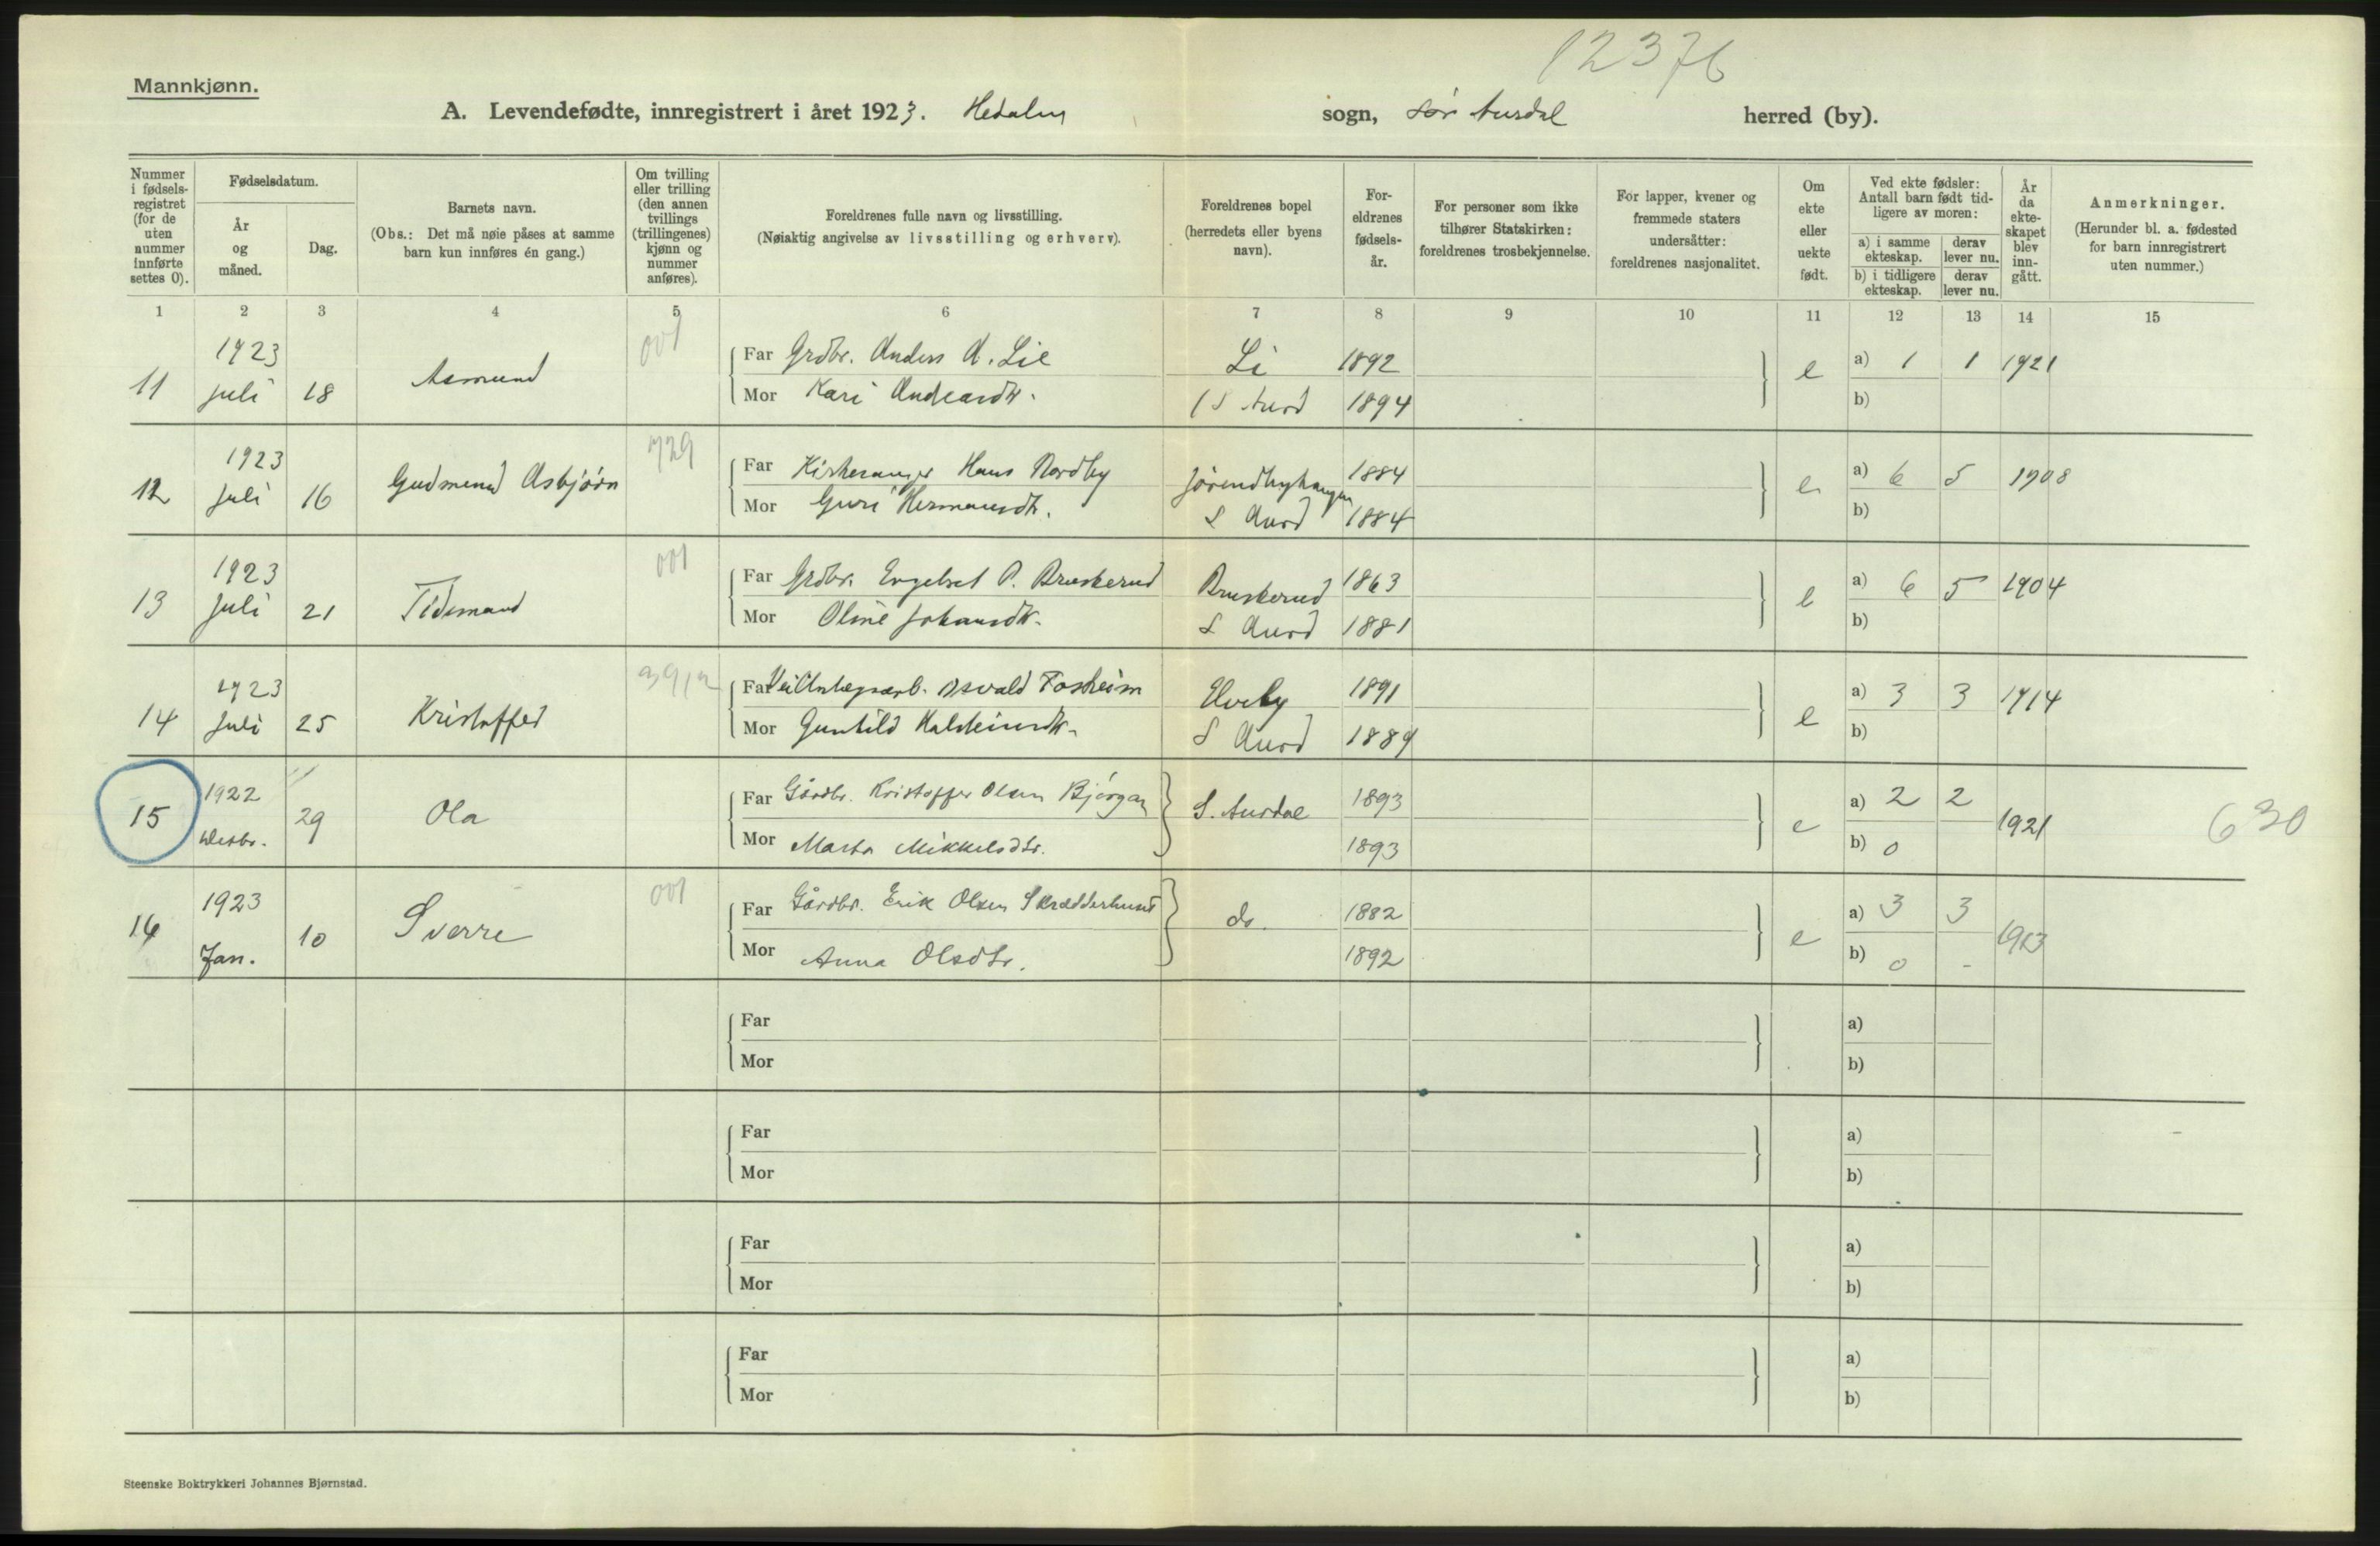 12376
Mannkjønn.
A. Levendefødte, innregistrert i året 1923. Hedalen sogn, Sør Aurdal herred (by).
Nummer i fødselsregistret (for de uten nummer innførte settes 0).
Fødselsdatum.
År og måned.
Dag.
Barnets navn.
(Obs.: Det må nøie påses at samme barn kun innføres én gang.)
Om tvilling eller trilling (den annen tvillings (trillingenes) kjønn og nummer anføres).
Foreldrenes fulle navn og livsstilling.
(Nøiaktig angivelse av livsstilling og erhverv).
Foreldrenes bopel (herredets eller byens navn).
Foreldrenes fødselsår.
For personer som ikke tilhører Statskirken: foreldrenes trosbekjennelse.
For lapper, kvener og fremmede staters undersåtter: foreldrenes nasjonalitet.
Om ekte eller uekte født.
Ved ekte fødsler: Antall barn født tidligere av moren:
a) i samme ekteskap. derav lever nu.
b) i tidligere ekteskap. derav lever nu.
År da ekteskapet blev inngått.
Anmerkninger.
(Herunder bl. a. fødested for barn innregistrert uten nummer.)
1 2 3 4 5 6 7 8 9 10 11 12 13 14 15
11 1923 juli 18 Asmund 001
Far Grdbr. Anders A. Lie Li 1892 e a) 1 1 1921
Mor Kari Andreasdtr. S Aurd 1894 b)
12 1923 juli 16 Gudmund Asbjörn 729
Far Kirkesanger Hans Nordby 1884 e a) 6 5 1908
Mor Guri Hermansdtr. S Aurd 1884 b)
13 1923 juli 21 Tidemand 001
Far Grdbr. Engebret P. Bruskerud Bruskerud 1863 e a) 6 5 1904
Mor Oline Johansdtr. S Aurd 1881 b)
14 1923 juli 25 Kristoffer
Far Osvald Fosheim Elveby 1891 e a) 3 3 1914
Mor Gunhild S Aurd 1889 b)
15 1922 Desbr. 29 Ola
Far Gårdbr. Kristoffer Olsen Bjørgan S. Aurdal 1893 e a) 2 2 1921 630
Mor Marta Mikkelsdtr. 1893 b) 0
16 1923 Jan. 10 Sverre 001
Far Gårdbr. Erik Olsen Skrædderhuset do. 1882 e a) 3 3 1913
Mor Anna Olsdtr. 1892 b) 0 -
Far a)
Mor b)
Far a)
Mor b)
Far a)
Mor b)
Far a)
Mor b)
Steenske Boktrykkeri Johannes Bjørnstad.